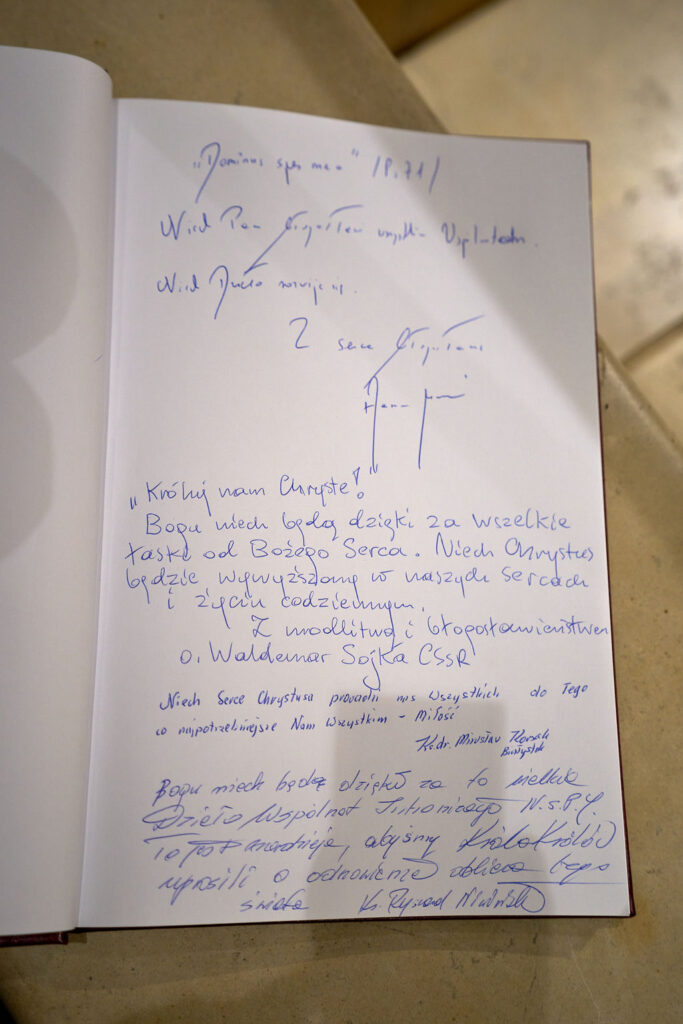 "Dominus spes mea" /P. 71/
Niech Pan
Niech Dzieło rozwija się.
Z serca
„Króluj nam Chryste!"
Bogu niech będą dzięki za wszelkie
łaski od Bożego Serca. Niech Chrystus
będzie wywyższony w naszych sercach
i życiu codziennym.
Z modlitwą i błogosławieństwem
o. Waldemar Sojka CSSR
Niech Serce Chrystusa prowadzi nas Wszystkich do Tego
co najpotrzebniejsze Nam Wszystkim - Miłość
Ks. dr. Mirosław
Białystok
Bogu niech będą dzięki za to wielkie
Dzieło Wspólnot N.S.P.J.
To jest nadzieja, abyśmy Króla Królów
uprosili o odnowienie oblicza tego
świata Ks. Ryszard